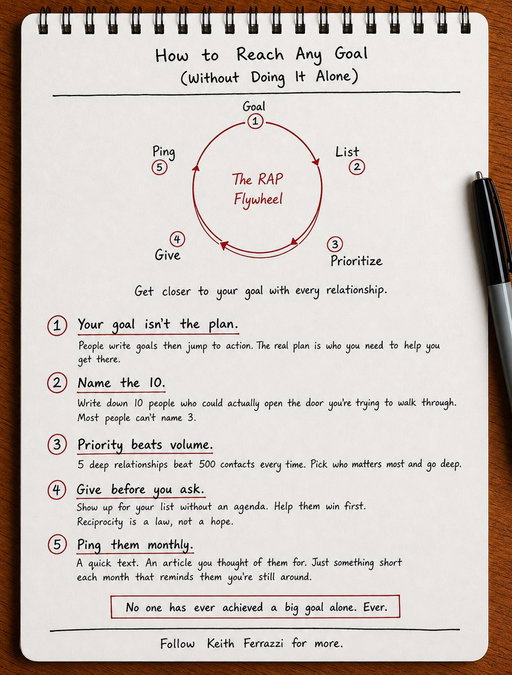 How to Reach Any Goal
(Without Doing It Alone)
Goal
1
Ping
5
List
2
The RAP
Flywheel
4
Give
3
Prioritize
Get closer to your goal with every relationship.
1 Your goal isn't the plan.
People write goals then jump to action. The real plan is who you need to help you
get there.
2 Name the 10.
Write down 10 people who could actually open the door you're trying to walk through.
Most people can't name 3.
3 Priority beats volume.
5 deep relationships beat 500 contacts every time. Pick who matters most and go deep.
4 Give before you ask.
Show up for your list without an agenda. Help them win first.
Reciprocity is a law, not a hope.
5 Ping them monthly.
A quick text. An article you thought of them for. Just something short
each month that reminds them you're still around.
No one has ever achieved a big goal alone. Ever.
Follow Keith Ferrazzi for more.